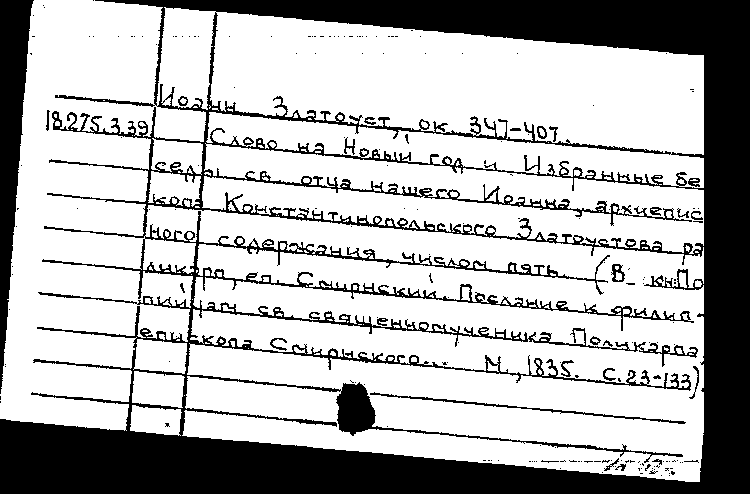 Иоанн Златоуст, ок. 347-407.
18.275.3.39 Слово на Новый год и Избранные бе
седы св. отца нашего Иоанна, архиепис
копа Константинопольского Златоустова раз
ного содержания, числом пять. (В кн: По
ликарп, еп. Смирнский. Послание к филип-
пийцам св. священномученика Поликарпа,
епископа Смирнского... М., 1835. С. 23-133).